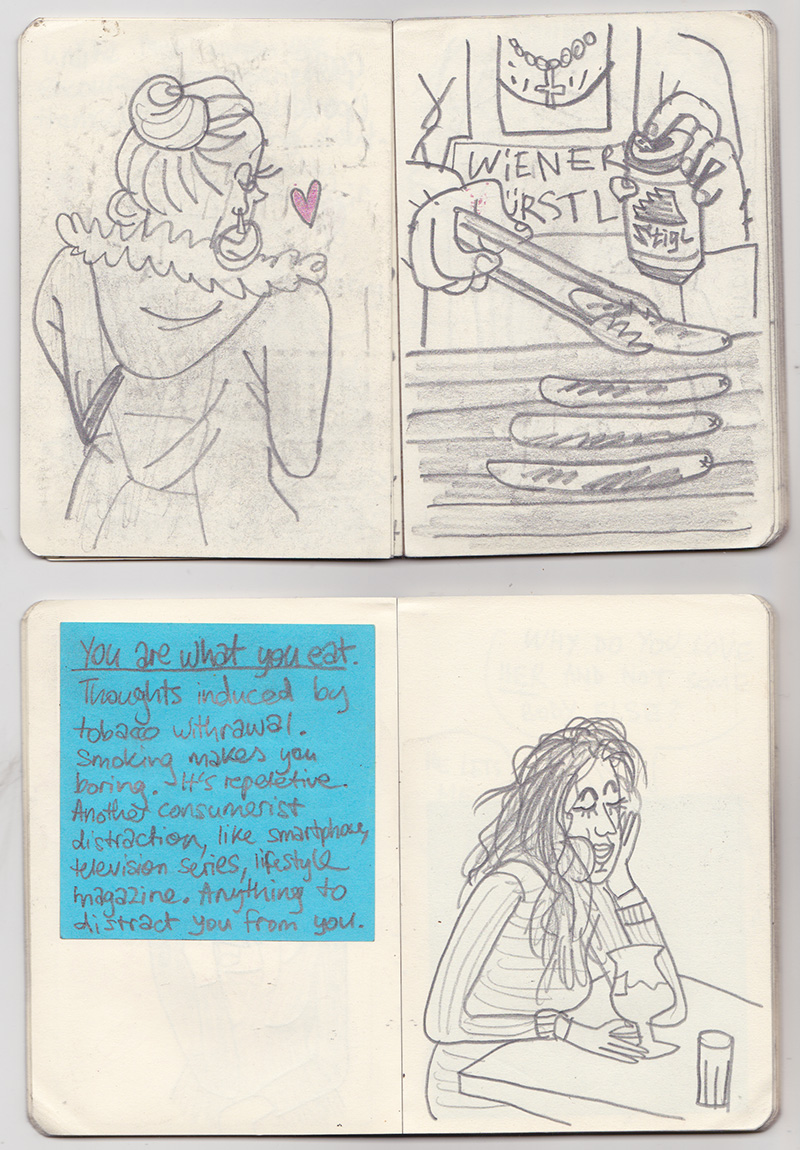 WiENER
ÜRSTL
Stigl
You are what you eat.
Thoughts induced by
tobacco withrawal.
Smoking makes you
boring. It's repetetive.
Another consumerist
distraction, like smartphone,
television series, lifestyle
magazine. Anything to
distract you from you.